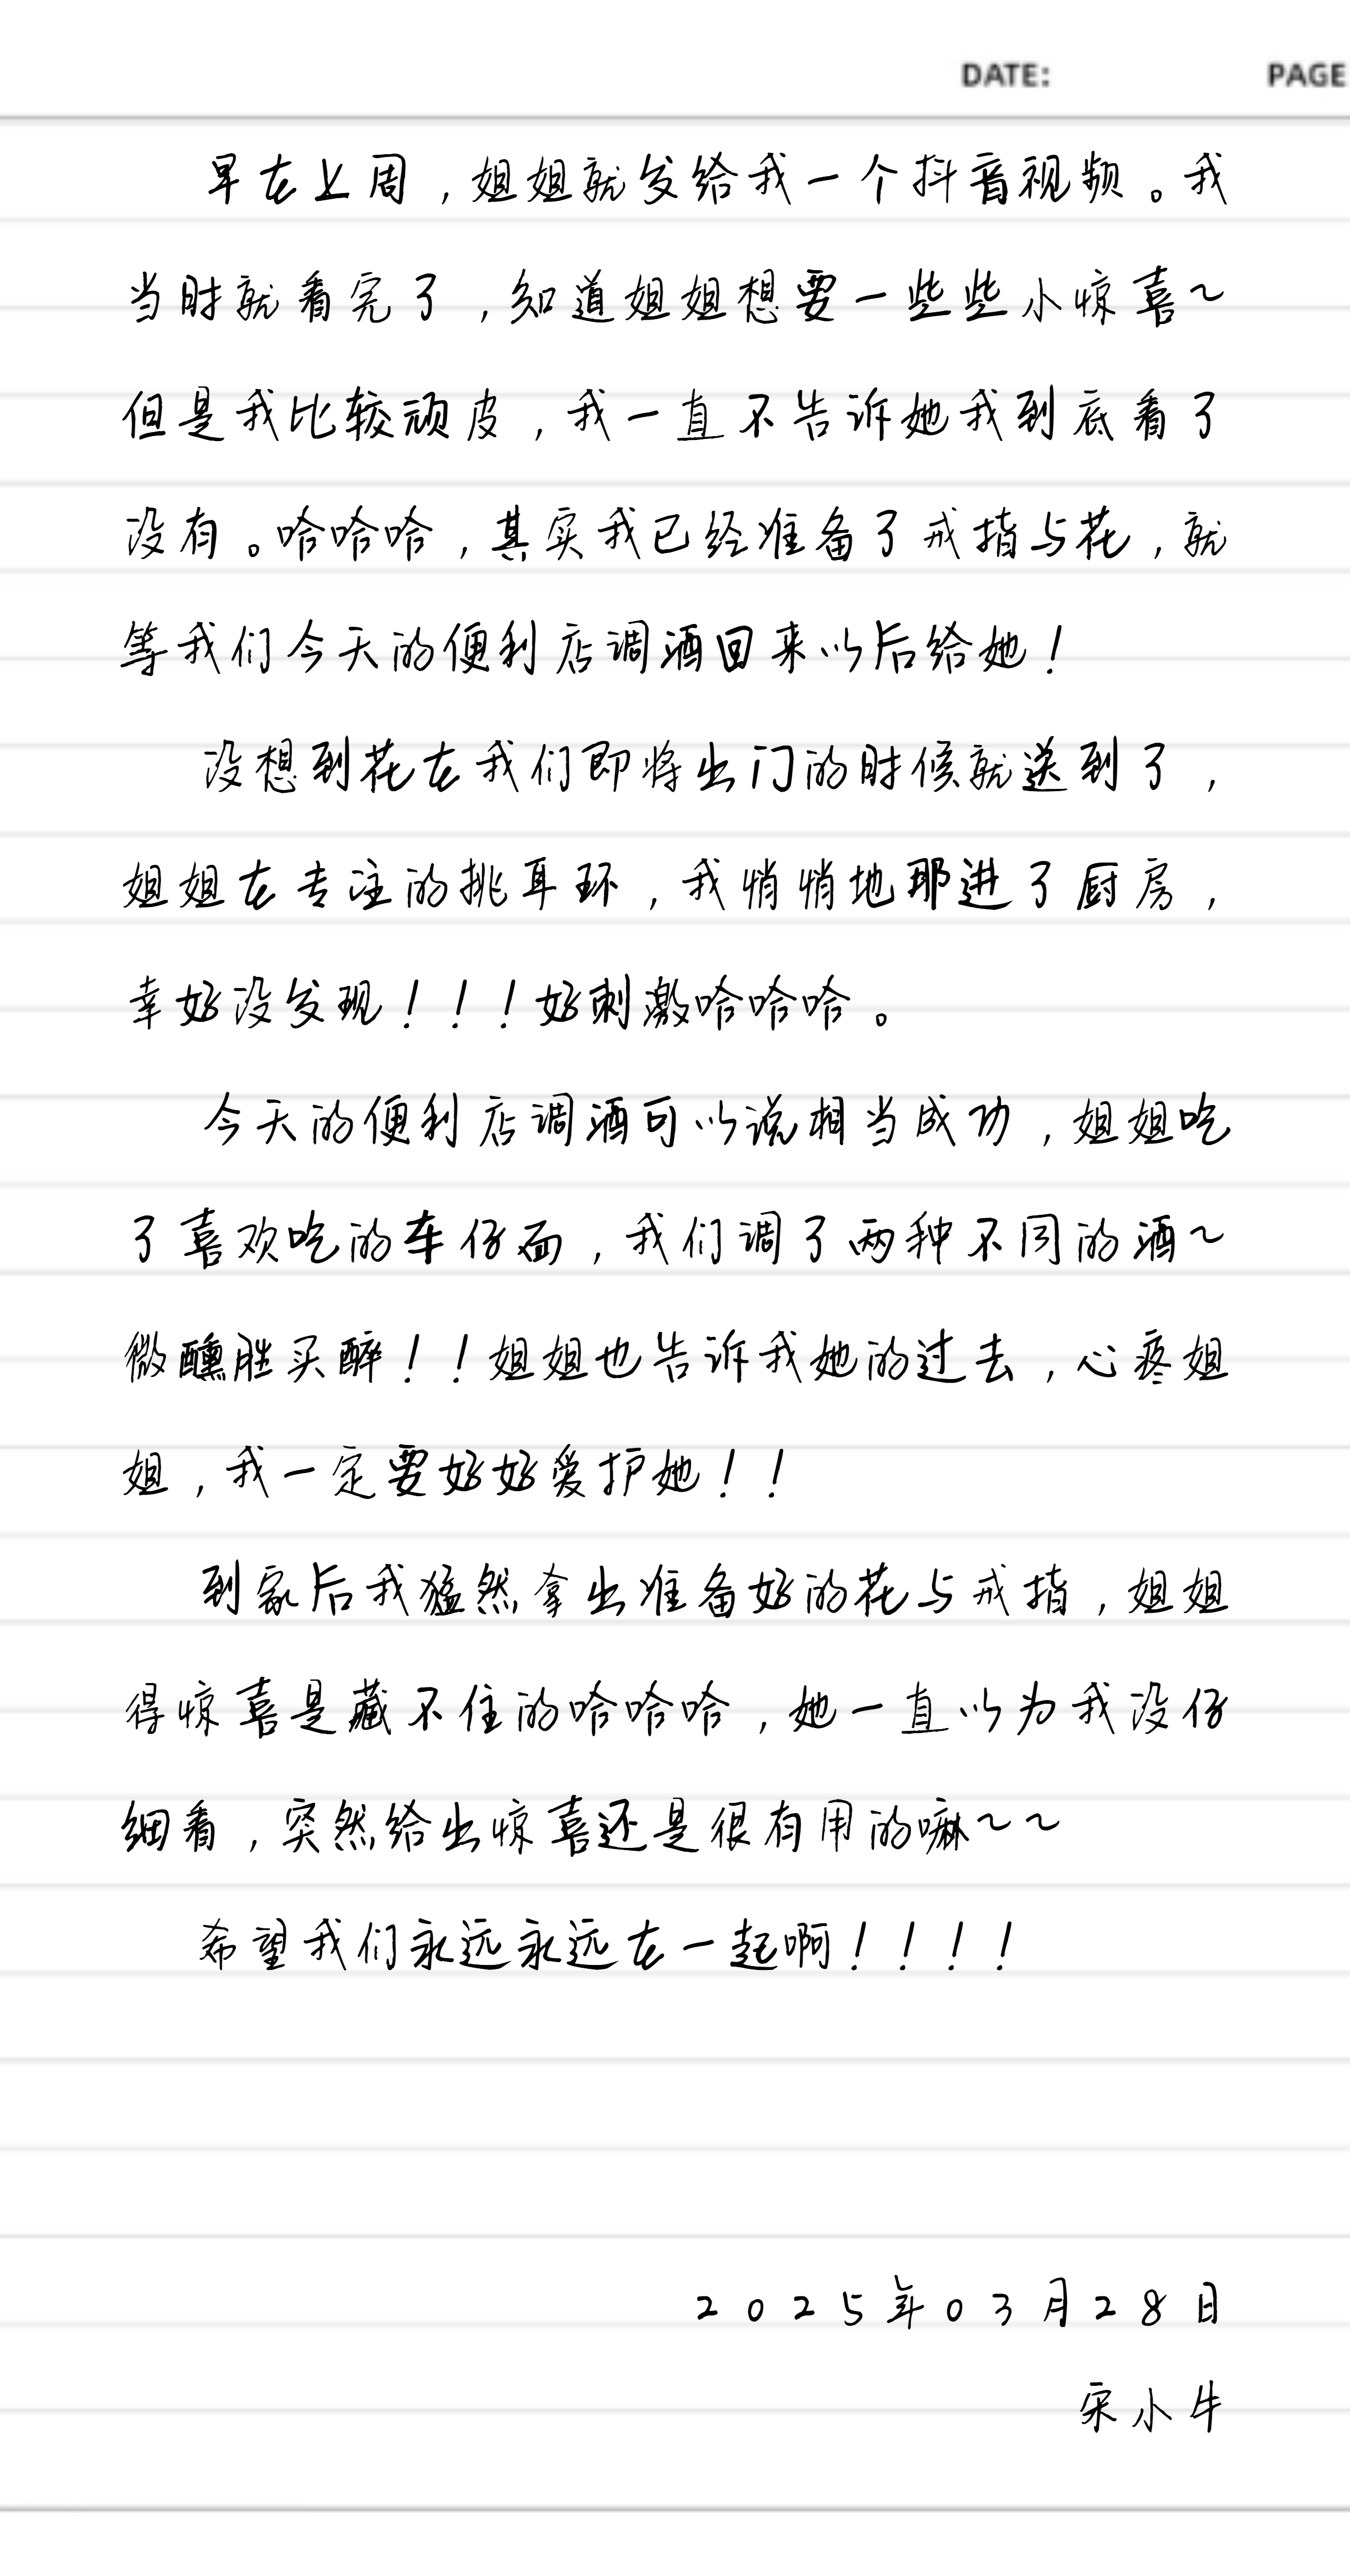 DATE: PAGE
早在上周，姐姐就发给我一个抖音视频。我
当时就看完了，知道姐姐想要一些些小惊喜~
但是我比较顽皮，我一直不告诉她我到底看了
没有。哈哈哈，其实我已经准备了戒指与花，就
等我们今天的便利店调酒回来以后给她！
没想到花在我们即将出门的时候就送到了，
姐姐在专注的挑耳环，我悄悄地那进了厨房，
幸好没发现！！！好刺激哈哈哈。
今天的便利店调酒可以说相当成功，姐姐吃
了喜欢吃的车仔面，我们调了两种不同的酒~
微醺胜买醉！！姐姐也告诉我她的过去，心疼姐
姐，我一定要好好爱护她！！
到家后我猛然拿出准备好的花与戒指，姐姐
得惊喜是藏不住的哈哈哈，她一直以为我没仔
细看，突然给出惊喜还是很有用的嘛~~
希望我们永远永远在一起啊！！！！
2025年03月28日
宋小牛